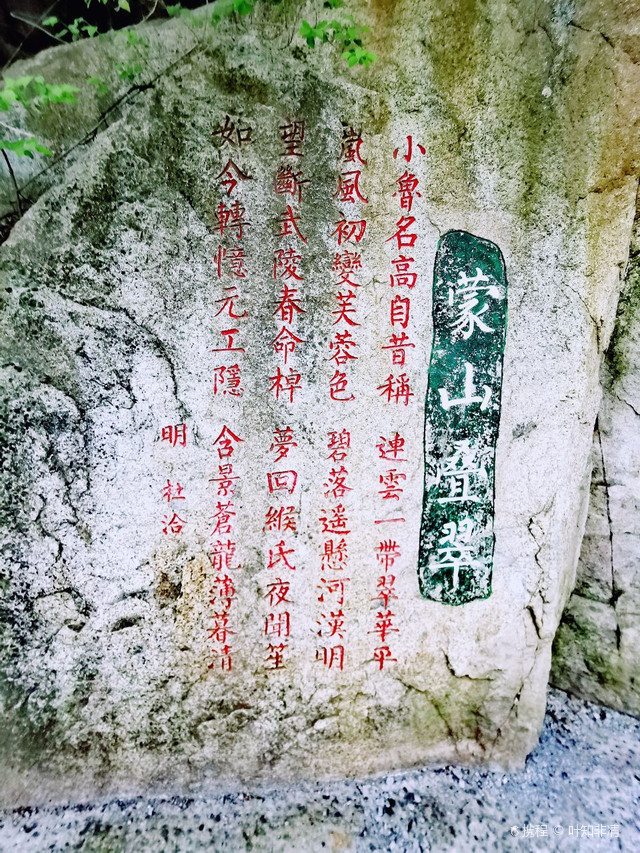 蒙山叠翠
小魯名高自昔稱 連雲一帶翠華平
嵐風初變芙蓉色 碧落遥懸河漢明
望斷武陵春命棹 夢回緱氏夜聞笙
如今轉憶元工隱 含景蒼龍薄暮清
明 杜洽
携程 © 叶知非清